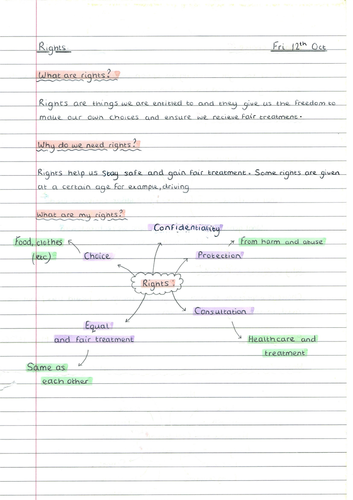 Rights
Fri 12th Oct
What are rights?
Rights are things we are entitled to and they give us the freedom to
make our own choices and ensure we recieve fair treatment.
Why do we need rights?
Rights help us stay safe and gain fair treatment. Some rights are given
at a certain age for example, driving
What are my rights?
Confidentiality
Food, clothes
(etc)
Choice
Protection
From harm and abuse
Rights:
Consultation
Healthcare and
treatment
Equal
and fair treatment
Same as
each other